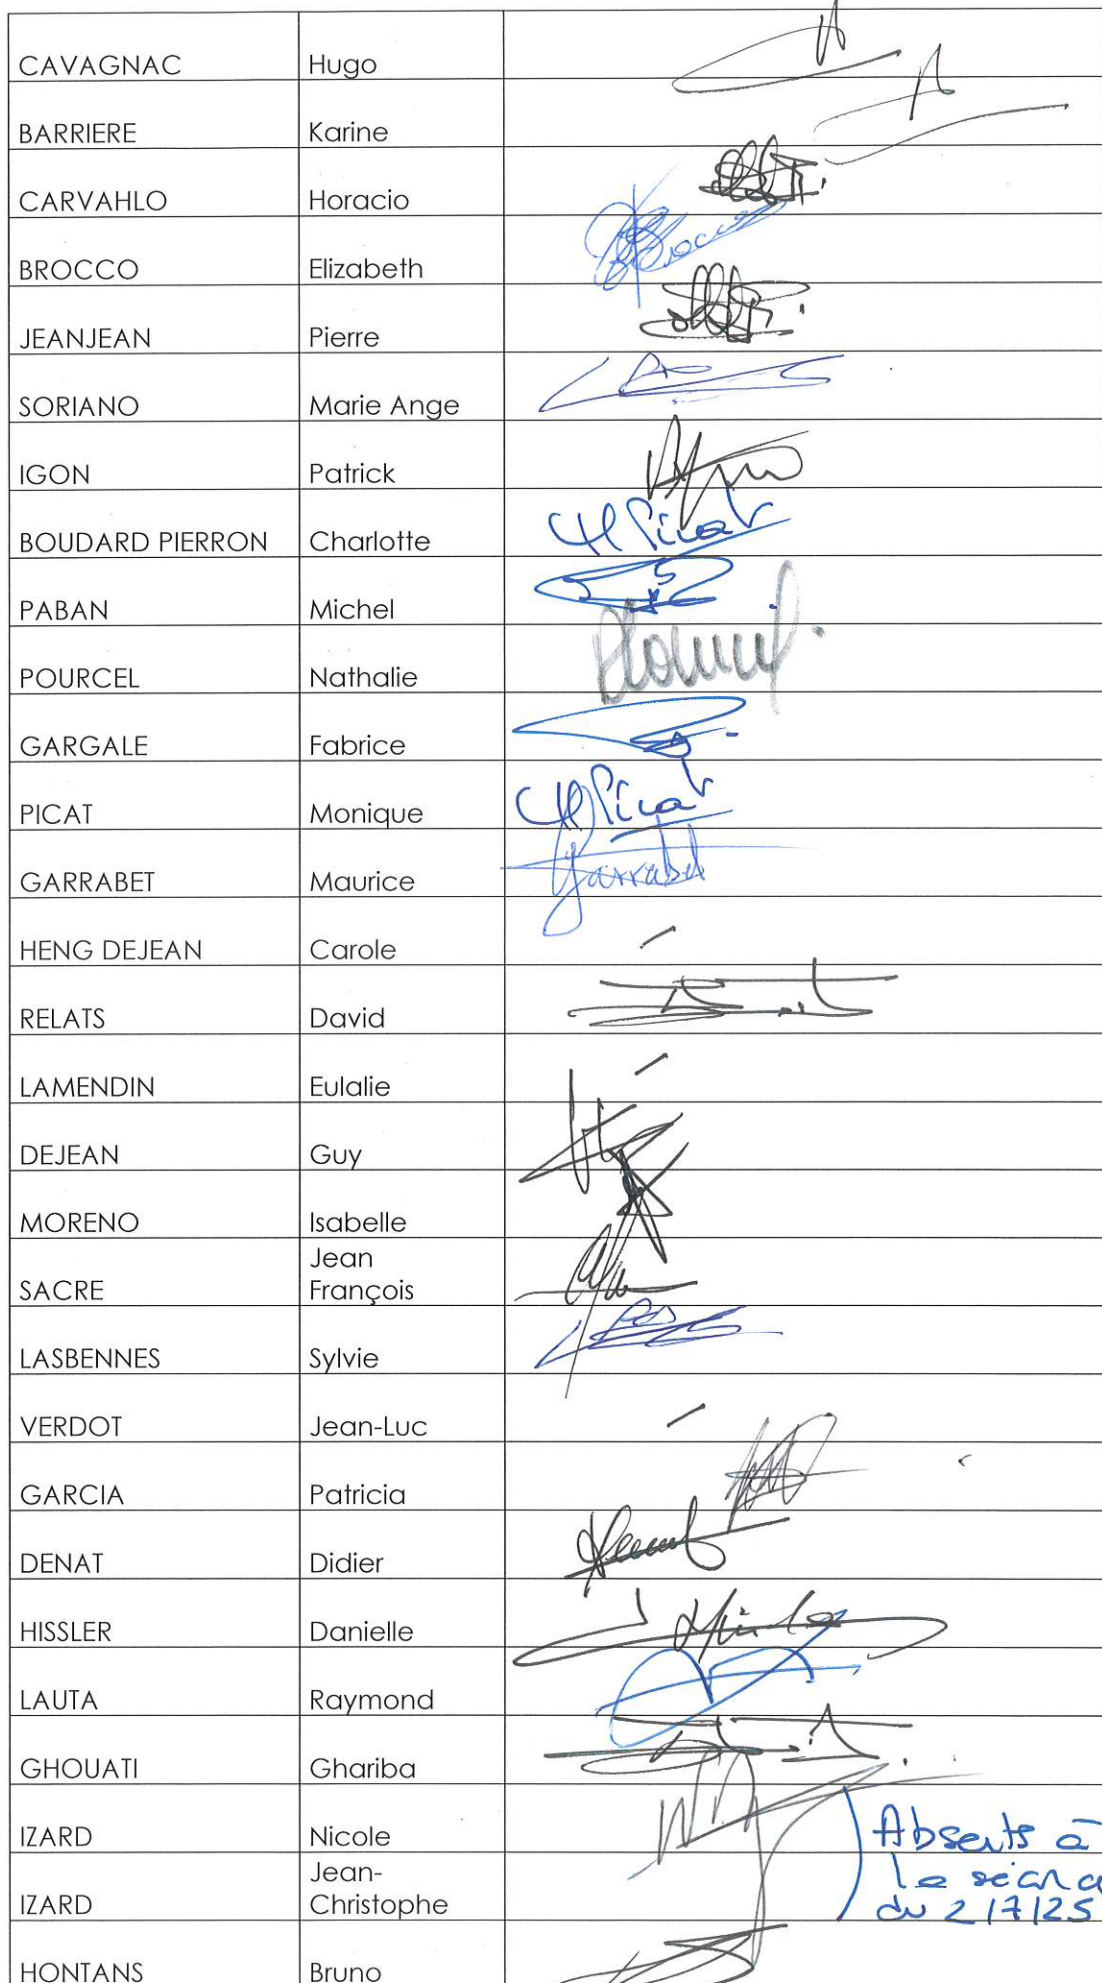 CAVAGNAC Hugo
BARRIERE Karine
CARVAHLO Horacio
BROCCO Elizabeth
JEANJEAN Pierre
SORIANO Marie Ange
IGON Patrick
BOUDARD PIERRON Charlotte
PABAN Michel
POURCEL Nathalie
GARGALE Fabrice
PICAT Monique
GARRABET Maurice
Garrabet
HENG DEJEAN Carole
RELATS David
LAMENDIN Eulalie
DEJEAN Guy
MORENO Isabelle
Jean
SACRE François
LASBENNES Sylvie
VERDOT Jean-Luc
GARCIA Patricia
DENAT Didier
HISSLER Danielle
LAUTA Raymond
GHOUATI Ghariba
IZARD Nicole
Jean-
IZARD Christophe
Absents à
la séance
du 2/7/25
HONTANS Bruno